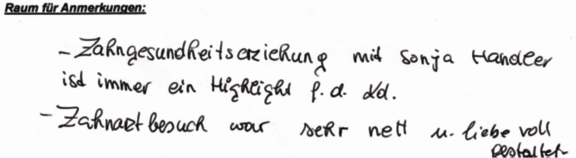 Raum für Anmerkungen:
- Zahngesundheitserziehung mit Sonja Handler
ist immer ein Highlight f. d. Kd.
- Zahnarztbesuch war sehr nett u. liebevoll
gestaltet